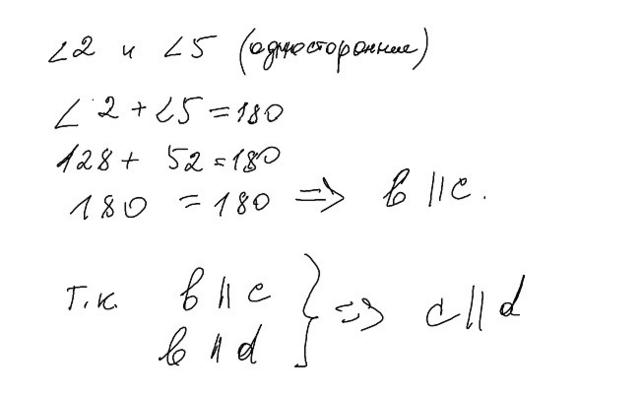 ∠2 и ∠5 (односторонние)
∠2 + ∠5 = 180
128 + 52 = 180
180 = 180 => b || c.
т.к. b || c
b || d } => c || d